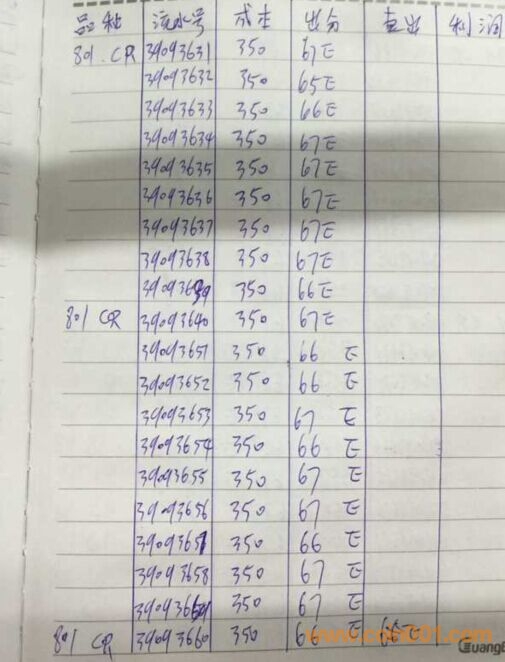 品种 流水号 成本 评分 卖出 利润
801 CR 39093631 350 67E
39093632 350 65E
39093633 350 66E
39093634 350 67E
39093635 350 67E
39093636 350 67E
39093637 350 67E
39093638 350 67E
39093639 350 66E
801 CR 39093640 350 67E
39093651 350 66 E
39093652 350 66 E
39093653 350 67 E
39093654 350 66 E
39093655 350 67 E
39093656 350 67 E
39093657 350 66 E
39093658 350 67 E
39093659 350 67 E
801 CR 39093660 350 66 E 66E